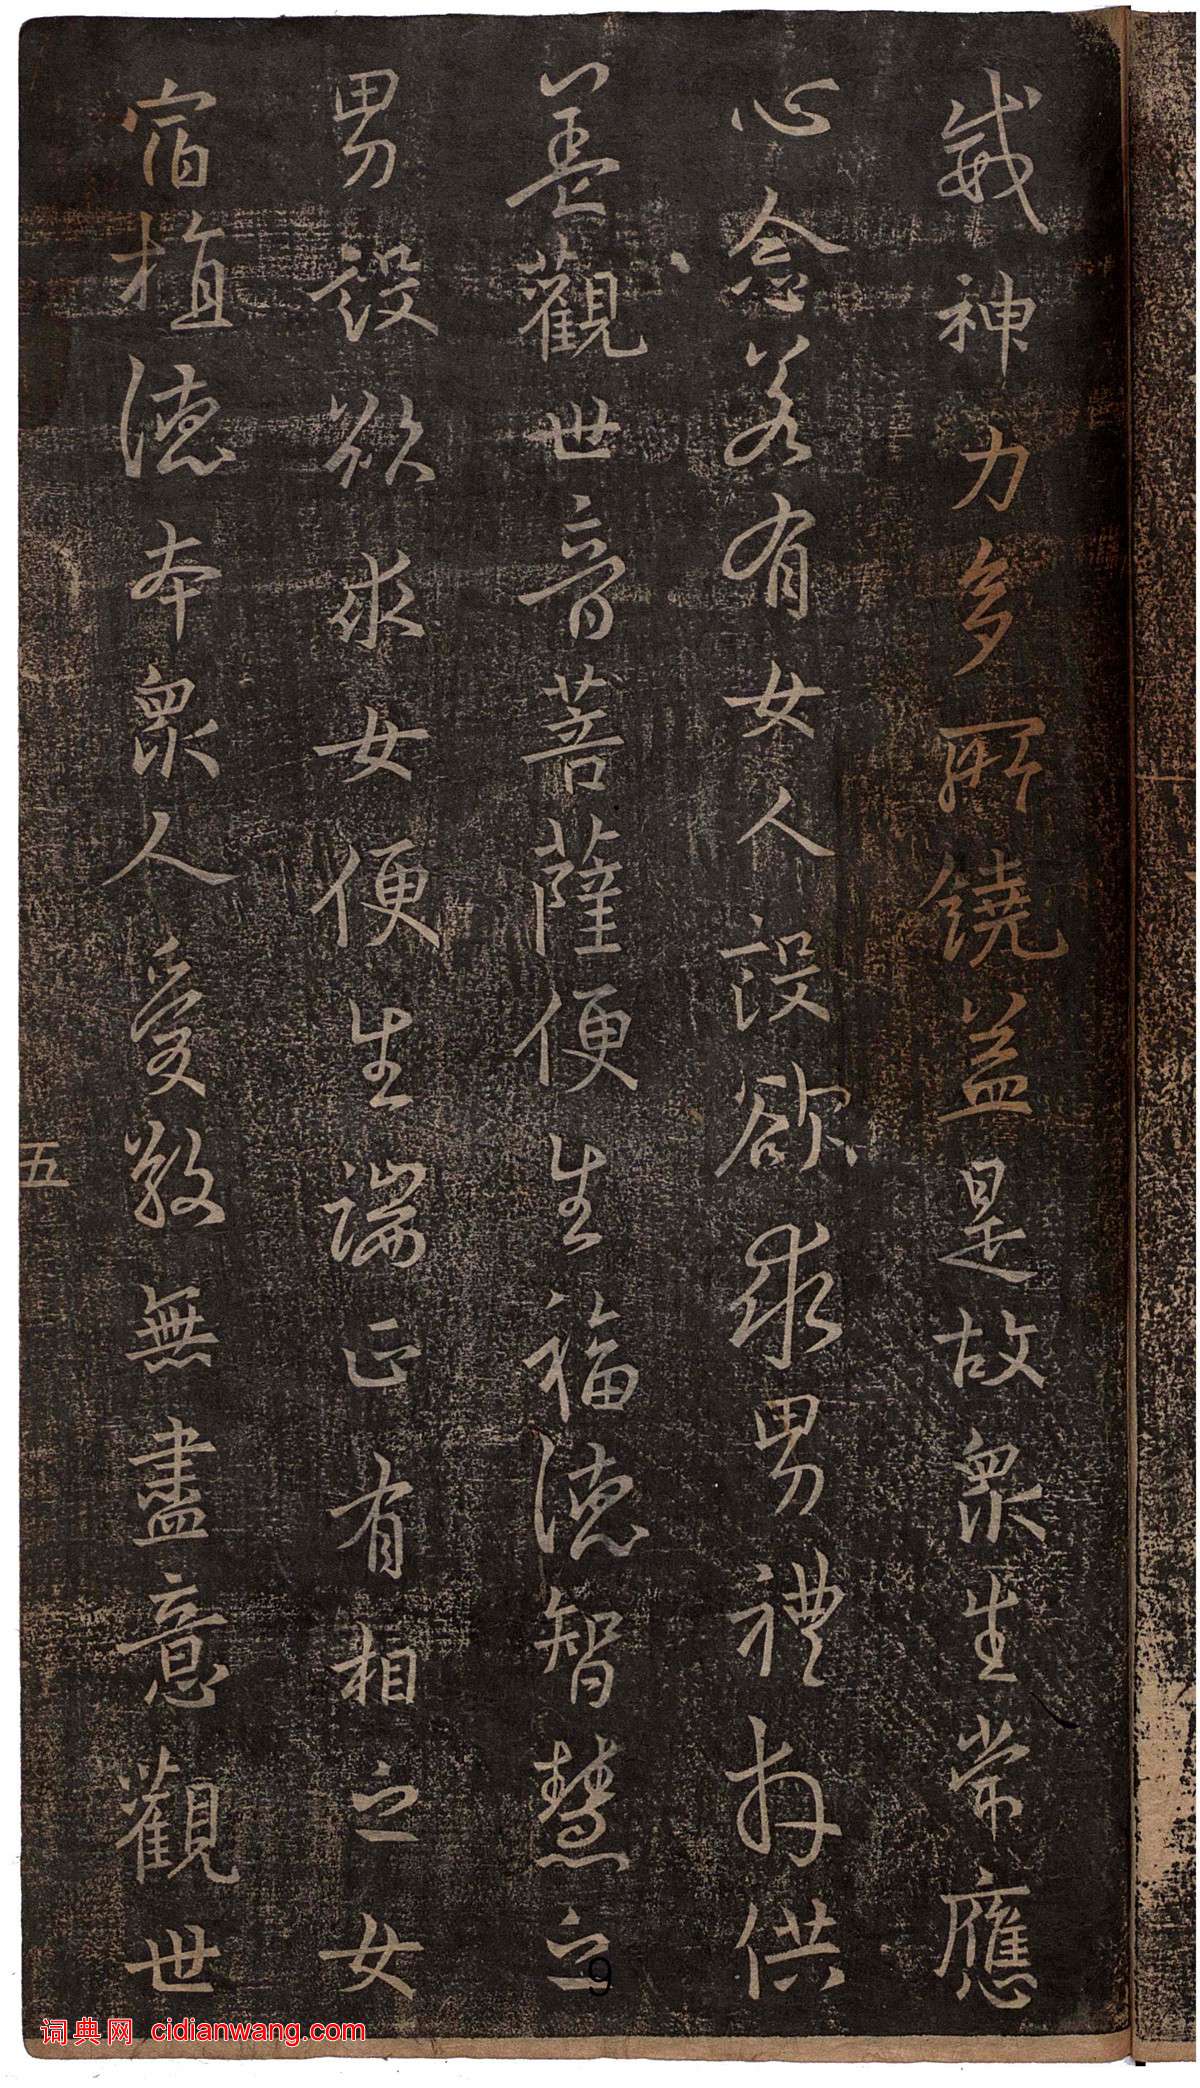 威神力多所饒益是故眾生常應
心念若有女人設欲求男禮拜供
養觀世音菩薩便生福德智慧之
男設欲求女便生端正有相之女
宿植德本眾人愛敬無盡意觀世
五
9
词典网 cidianwang.com